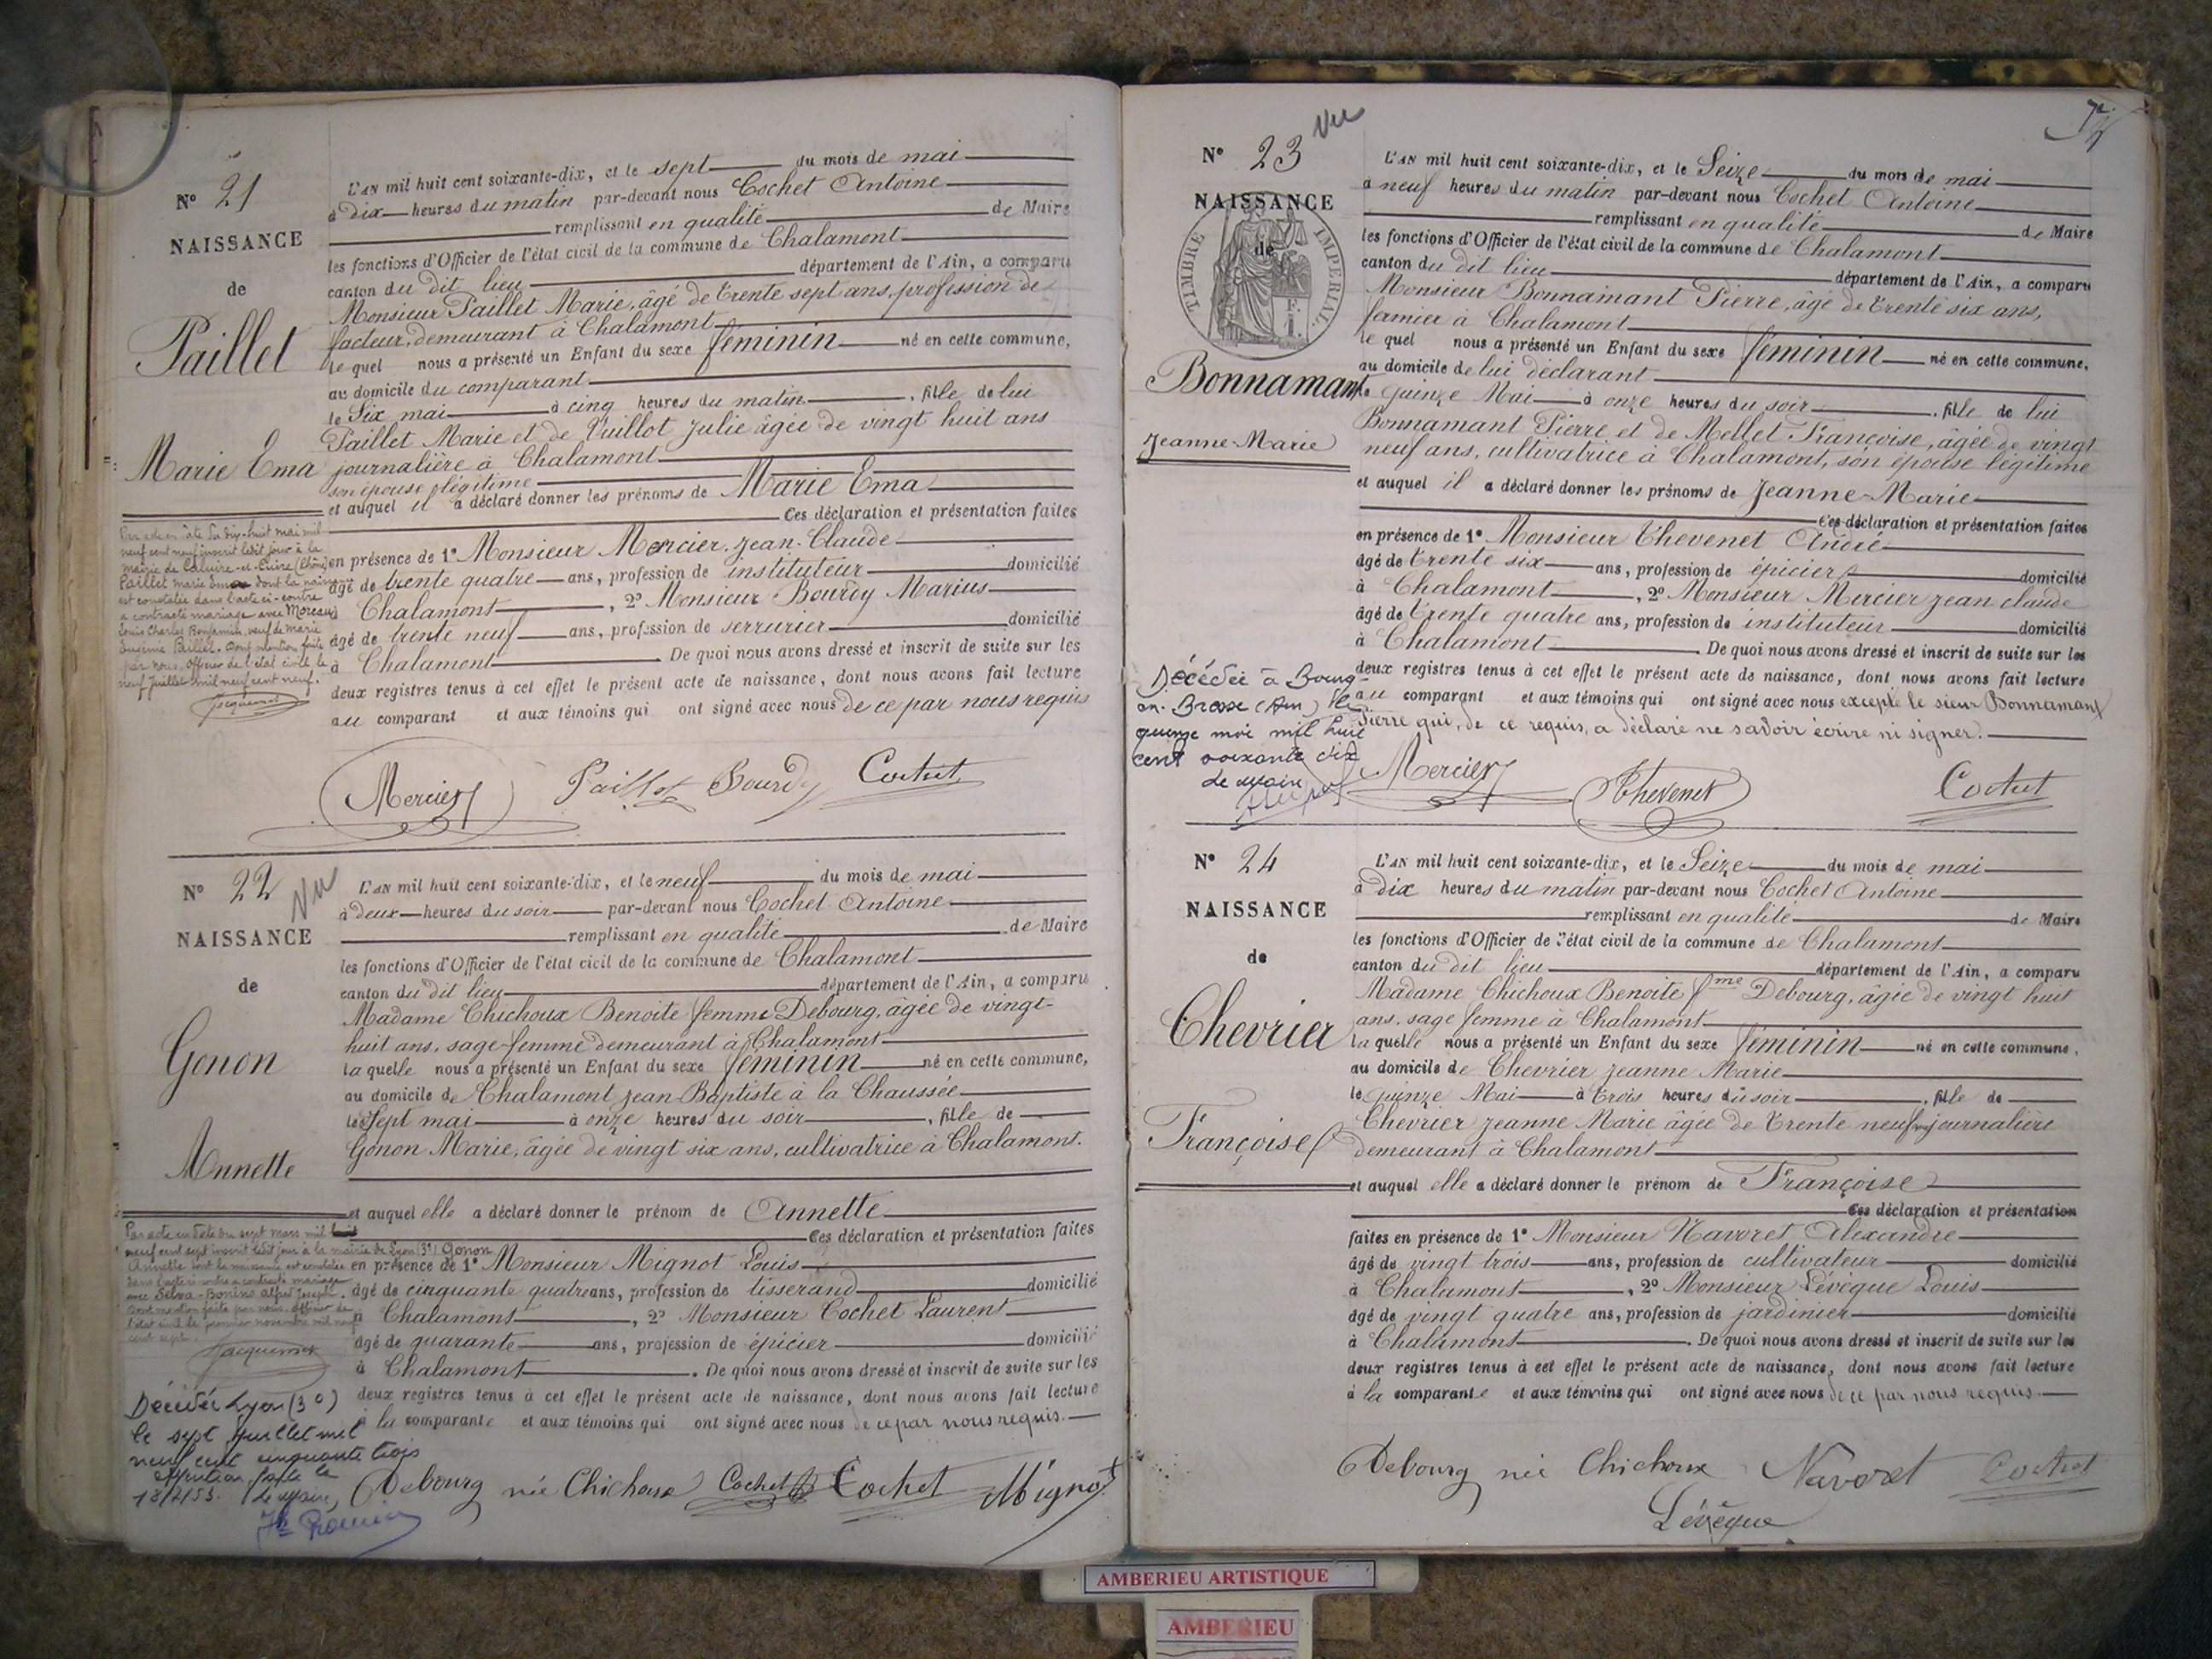 N° 21
NAISSANCE
de
Paillet
Marie Ema
L'AN mil huit cent soixante-dix, et le sept du mois de mai
à dix heures du matin par-devant nous Cochet Antoine
remplissant en qualité de Maire
les fonctions d'Officier de l'état civil de la commune de Chalamont
canton du dit lieu département de l'Ain, a comparu
Monsieur Paillet Marie, âgé de trente sept ans, profession de
facteur, demeurant à Chalamont
le quel nous a présenté un Enfant du sexe féminin né en cette commune,
au domicile du comparant
le Six mai à cinq heures du matin, fille de lui
Paillet Marie et de Vuillot Julie âgée de vingt huit ans
journalière à Chalamont
son épouse légitime
et auquel il a déclaré donner les prénoms de Marie Ema
Ces déclaration et présentation faites
en présence de 1° Monsieur Mercier Jean-Claude
âgé de trente quatre ans, profession de instituteur domicilié
à Chalamont, 2° Monsieur Bourdy Marius
âgé de trente neuf ans, profession de serrurier domicilié
à Chalamont. De quoi nous avons dressé et inscrit de suite sur les
deux registres tenus à cet effet le présent acte de naissance, dont nous avons fait lecture
au comparant et aux témoins qui ont signé avec nous de ce par nous requis
Par acte en date du dix-huit mai mil
neuf cent neuf inscrit ledit jour à la
mairie de Caluire-et-Cuire (Rhône)
Paillet Marie Ema dont la naissance
est constatée dans l'acte ci-contre
a contracté mariage avec Moreau
Louis Charles Benjamin, veuf de Marie
Eugénie Paillet. Dont mention faite
par nous, officier de l'état civil le
neuf Juillet mil neuf cent neuf.
Jacquemot
Mercier Paillet Bourdy Cochet
N° 22 Vu
NAISSANCE
de
Gonon
Annette
L'AN mil huit cent soixante-dix, et le neuf du mois de mai
à deux heures du soir par-devant nous Cochet Antoine
remplissant en qualité de Maire
les fonctions d'Officier de l'état civil de la commune de Chalamont
canton du dit lieu département de l'Ain, a comparu
Madame Chichoux Benoite femme Debourg, âgée de vingt
huit ans, sage-femme demeurant à Chalamont
la quelle nous a présenté un Enfant du sexe féminin né en cette commune,
au domicile de Chalamont Jean-Baptiste à la Chaussée
le Sept mai à onze heures du soir, fille de
Gonon Marie, âgée de vingt six ans, cultivatrice à Chalamont.
et auquel elle a déclaré donner le prénom de Annette
Ces déclaration et présentation faites
en présence de 1° Monsieur Mignot Louis
âgé de cinquante quatre ans, profession de tisserand domicilié
à Chalamont, 2° Monsieur Cochet Laurent
âgé de quarante ans, profession de épicier domicilié
à Chalamont. De quoi nous avons dressé et inscrit de suite sur les
deux registres tenus à cet effet le présent acte de naissance, dont nous avons fait lecture
à la comparante et aux témoins qui ont signé avec nous de ce par nous requis.
Par acte en date du sept mars mil
neuf cent sept inscrit ledit jour à la mairie de Lyon (3e) Gonon
Annette dont la naissance est constatée
dans l'acte ci-contre a contracté mariage
avec Selva-Bonino Alfred Joseph.
Dont mention faite par nous, officier de
l'état civil le premier novembre mil neuf
cent sept.
Jacquemot
Décédée Lyon (3°)
le sept juillet mil
neuf cent cinquante trois
le
Le Maire,
Debourg née Chichoux Cochet Cochet Mignot
N° 23 Vu
NAISSANCE
de
TIMBRE IMPERIAL
Bonnamant
Jeanne-Marie
L'AN mil huit cent soixante-dix, et le Seize du mois de mai
à neuf heures du matin par-devant nous Cochet Antoine
remplissant en qualité de Maire
les fonctions d'Officier de l'état civil de la commune de Chalamont
canton du dit lieu département de l'Ain, a comparu
Monsieur Bonnamant Pierre, âgé de trente six ans,
famier à Chalamont
le quel nous a présenté un Enfant du sexe féminin né en cette commune,
au domicile de lui déclarant
le quinze Mai à onze heures du soir, fille de lui
Bonnamant Pierre et de Mellet Françoise, âgée de vingt
neuf ans, cultivatrice à Chalamont, son épouse légitime
et auquel il a déclaré donner les prénoms de Jeanne-Marie
Ces déclaration et présentation faites
en présence de 1° Monsieur Thevenet André
âgé de trente six ans, profession de épicier domicilié
à Chalamont, 2° Monsieur Mercier Jean Claude
âgé de trente quatre ans, profession de instituteur domicilié
à Chalamont. De quoi nous avons dressé et inscrit de suite sur les
deux registres tenus à cet effet le présent acte de naissance, dont nous avons fait lecture
au comparant et aux témoins qui ont signé avec nous excepté le sieur Bonnamant
Pierre qui, de ce requis, a déclaré ne savoir écrire ni signer.
Décédée à Bourg
en Bresse (Ain) le
quinze mai mil huit
cent soixante dix
Le Maire
Mercier Thevenet Cochet
N° 24
NAISSANCE
de
Chevrier
Françoise
L'AN mil huit cent soixante-dix, et le Seize du mois de mai
à dix heures du matin par-devant nous Cochet Antoine
remplissant en qualité de Maire
les fonctions d'Officier de l'état civil de la commune de Chalamont
canton du dit lieu département de l'Ain, a comparu
Madame Chichoux Benoite fme Debourg, âgée de vingt huit
ans, sage femme à Chalamont
la quelle nous a présenté un Enfant du sexe féminin né en cette commune,
au domicile de Chevrier Jeanne Marie
le quinze Mai à trois heures du soir, fille de
Chevrier Jeanne Marie âgée de trente neuf ans journalière
demeurant à Chalamont
et auquel elle a déclaré donner le prénom de Françoise
Ces déclaration et présentation
faites en présence de 1° Monsieur Navoret Alexandre
âgé de vingt trois ans, profession de cultivateur domicilié
à Chalamont, 2° Monsieur Lévêque Louis
âgé de vingt quatre ans, profession de jardinier domicilié
à Chalamont. De quoi nous avons dressé et inscrit de suite sur les
deux registres tenus à cet effet le présent acte de naissance, dont nous avons fait lecture
à la comparante et aux témoins qui ont signé avec nous de ce par nous requis.
Debourg née Chichoux Navoret Cochet
Lévêque
AMBERIEU ARTISTIQUE
AMBERIEU